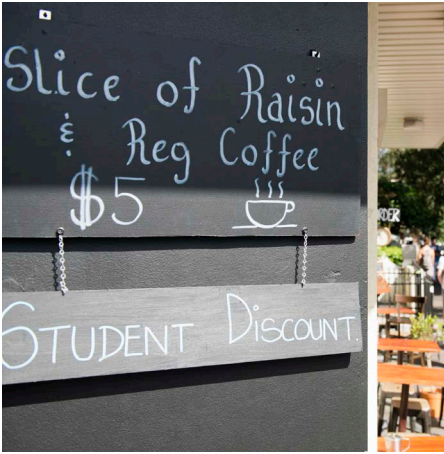 Slice of Raisin
& Reg Coffee
$5
STUDENT DISCOUNT.